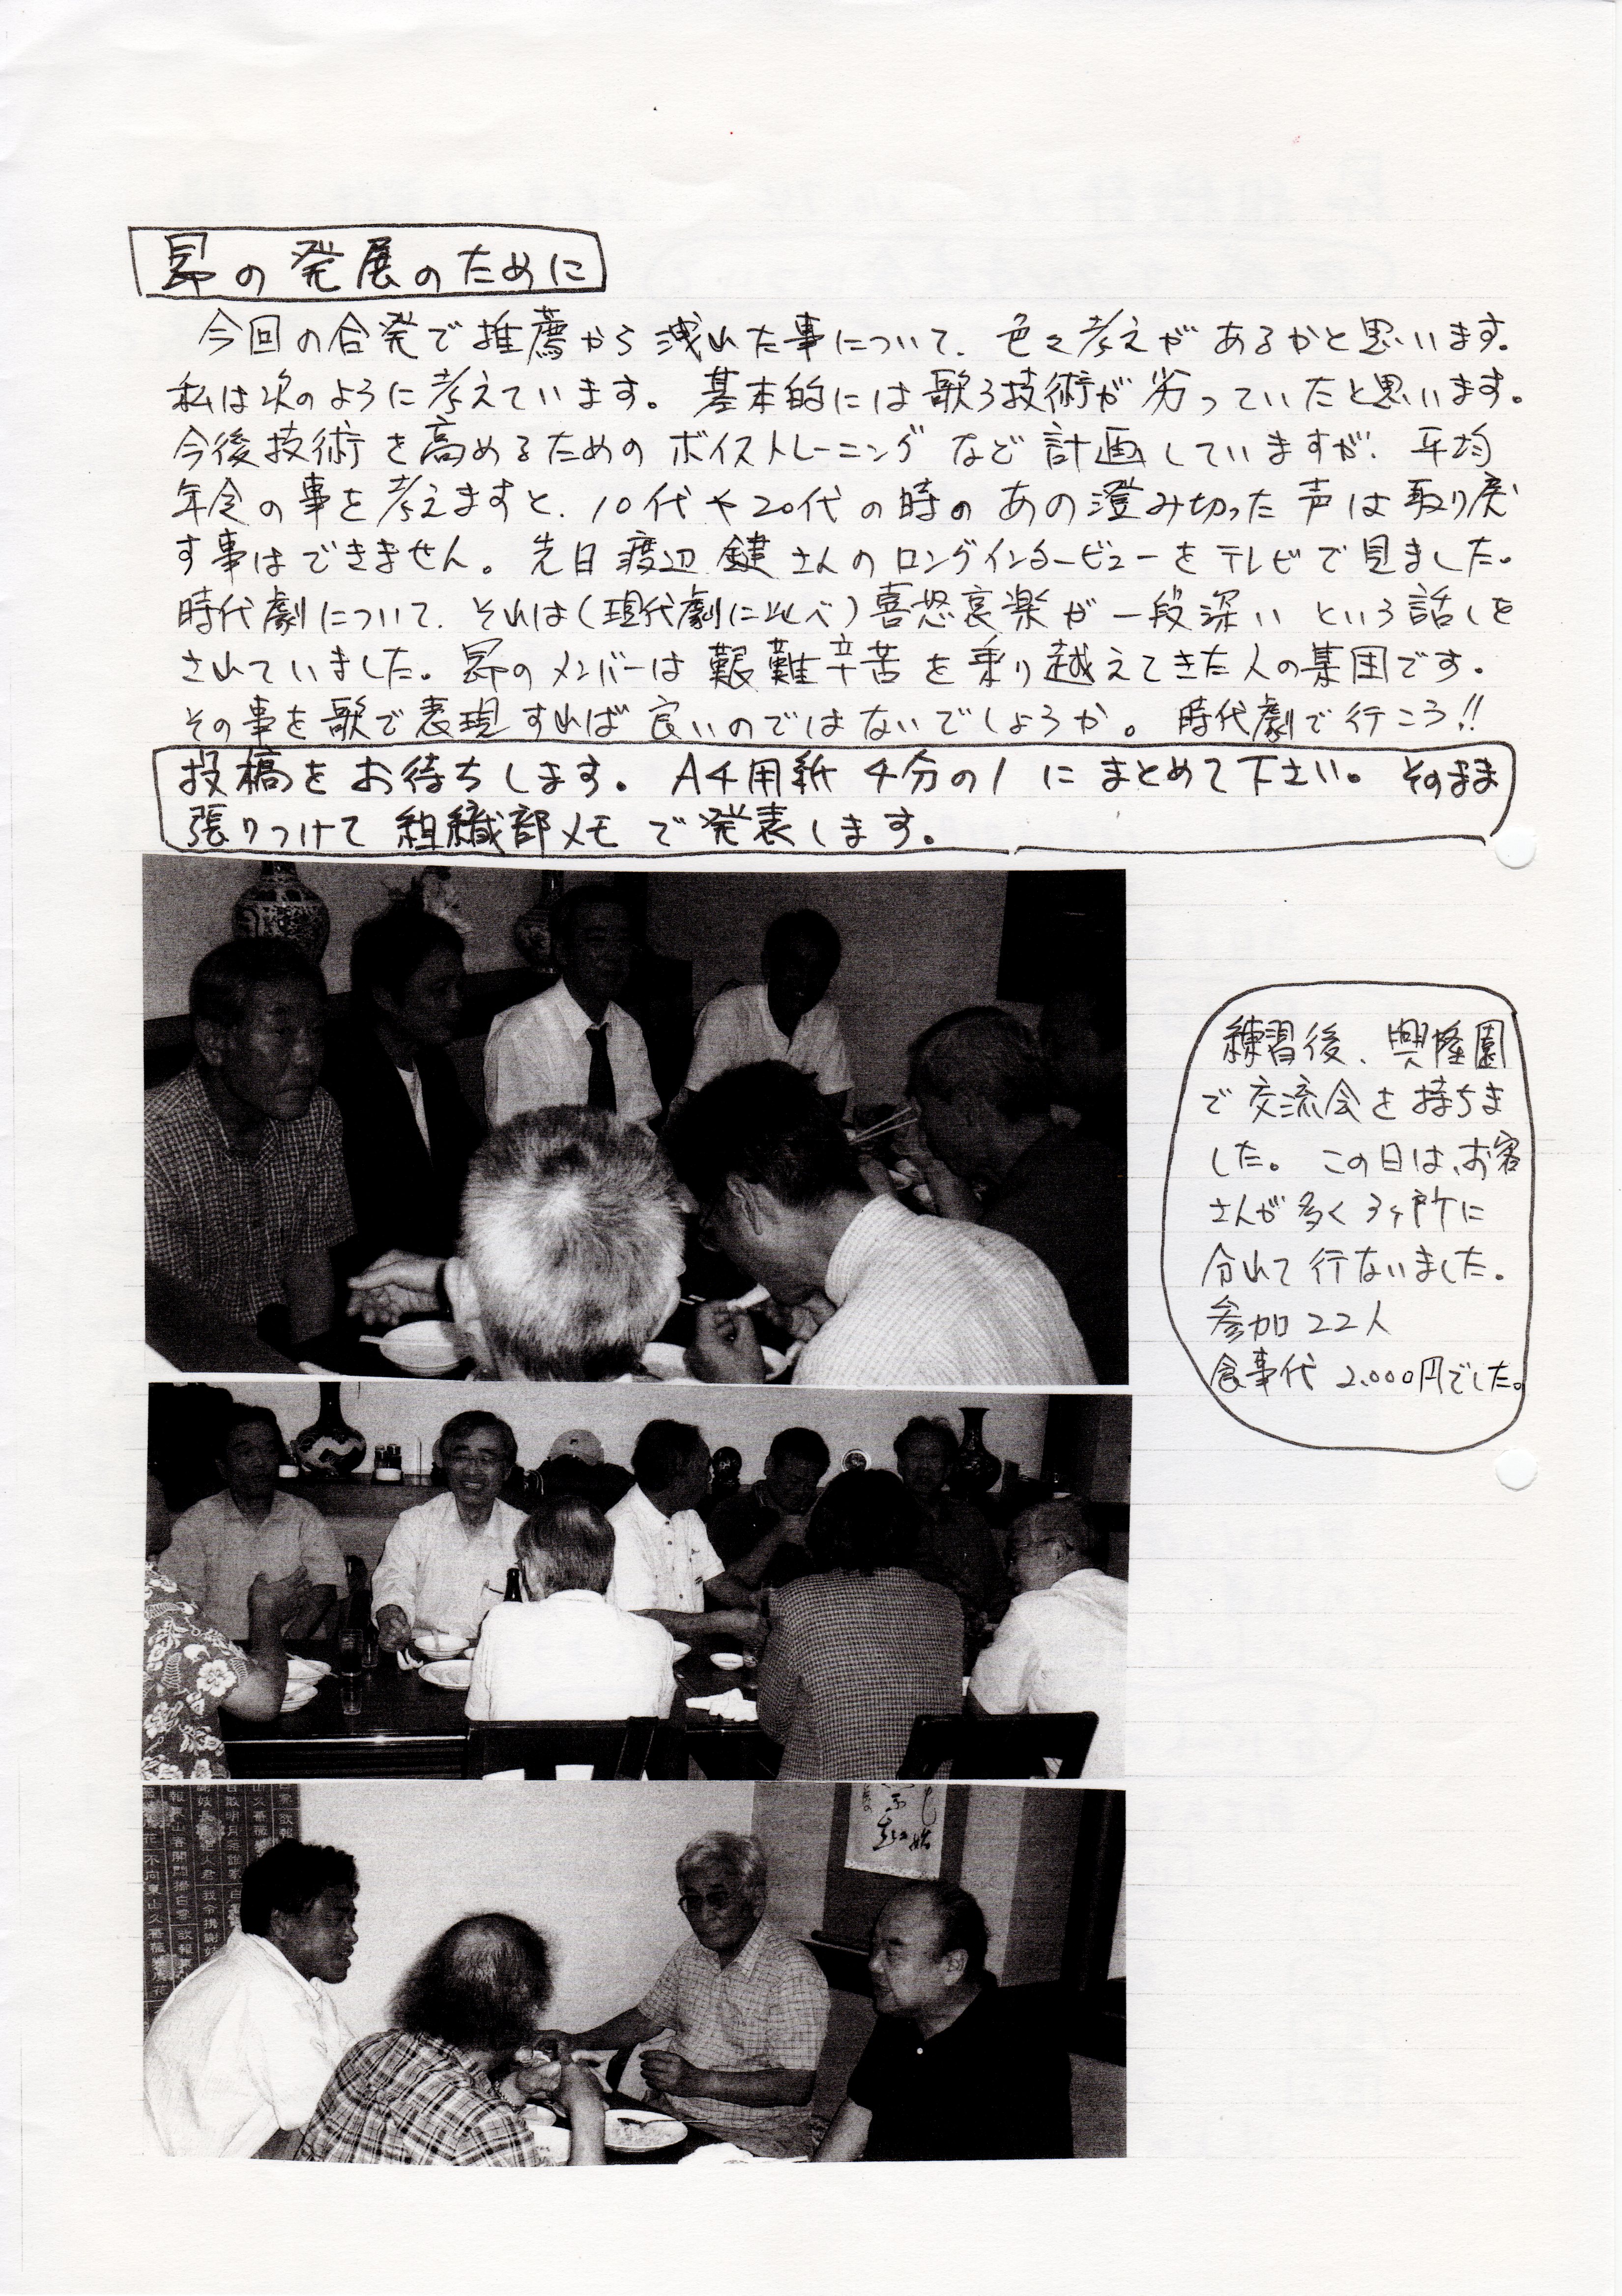 昴の発展のために
今回の合発で推薦から洩れた事について、色々考えがあるかと思います。
私は次のように考えています。基本的には歌う技術が劣っていたと思います。
今後技術を高めるためのボイストレーニングなど計画していますが、平均
年令の事を考えますと、10代や20代の時のあの澄み切った声は取り戻
す事はできません。先日渡辺鍵さんのロングインタービューをテレビで見ました。
時代劇について、それは(現代劇に比べ)喜怒哀楽が一段深いという話しを
されていました。昴のメンバーは艱難辛苦を乗り越えてきた人の集団です。
その事を歌で表現すれば良いのではないでしょうか。時代劇で行こう!!
投稿をお待ちします。A4用紙4分の1にまとめて下さい。そのまま
張りつけて組織部メモで発表します。
練習後、興隆園
で交流会を持ちま
した。この日は、お客
さんが多く3ヶ所に
分れて行ないました。
参加22人
食事代2,000円でした。